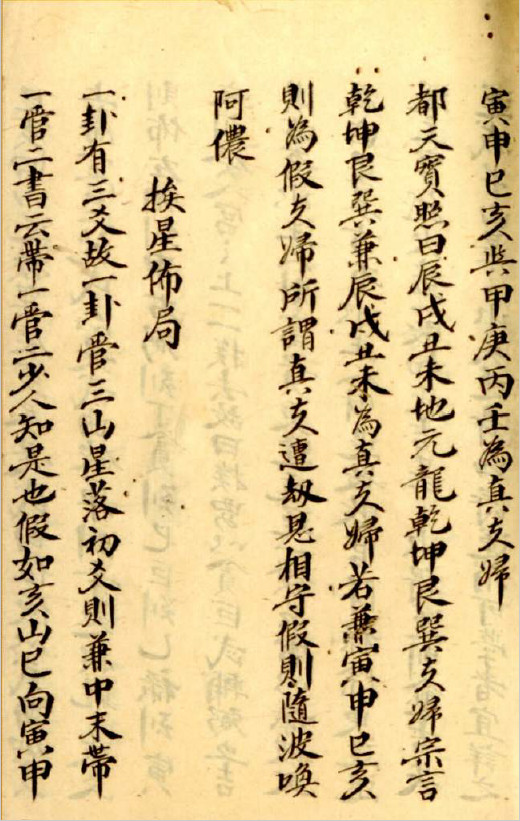 寅申巳亥與甲庚丙壬為真夫婦
都天寶照曰辰戌丑未地元龍乾坤艮巽夫婦宗言
乾坤艮巽兼辰戌丑未為真夫婦若兼寅申巳亥
則為假夫婦所謂真夫遭劫思相守假則隨波喚
阿儂
挨星佈局
一卦有三爻故一卦管三山星落初爻則兼中末帶
一管二書云帶一管二少人知是也假如亥山巳向寅申